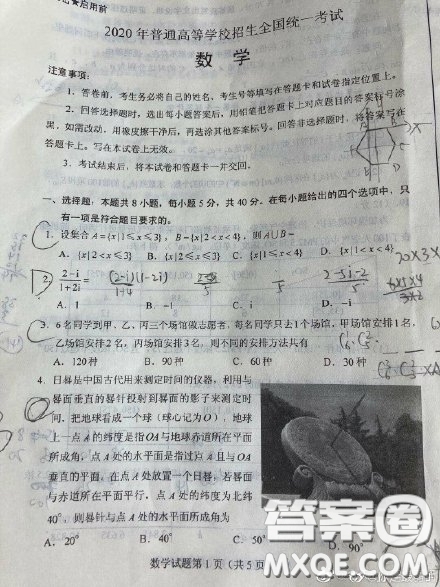 启用前
2020 年普通高等学校招生全国统一考试
数 学
注意事项：
1．答卷前，考生务必将自己的姓名、考生号等填写在答题卡和试卷指定位置上。
2．回答选择题时，选出每小题答案后，用铅笔把答题卡上对应题目的答案标号涂
黑，如需改动，用橡皮擦干净后，再选涂其他答案标号。回答非选择题时，将答案写在
答题卡上。写在本试卷上无效。
3．考试结束后，将本试卷和答题卡一并交回。
一、选择题：本题共 8 小题，每小题 5 分，共 40 分。在每小题给出的四个选项中，只
有一项是符合题目要求的。
1．设集合 A={x|1≤x≤3}，B={x|2<x<4}，则 A∪B=
A．{x|2<x≤3} B．{x|2≤x≤3} C．{x|1≤x<4} D．{x|1<x<4}
2．(2-i)/(1+2i)= (2-i)(1-2i)/(1+4) 2-5i-2/5
A．1 B．-1 C．i D．-i
3．6 名同学到甲、乙、丙三个场馆做志愿者，每名同学只去 1 个场馆，甲场馆安排 1 名，
乙场馆安排 2 名，丙场馆安排 3 名，则不同的安排方法共有
A．120 种 B．90 种 C．60 种 D．30 种
4．日晷是中国古代用来测定时间的仪器，利用与
晷面垂直的晷针投射到晷面的影子来测定时
间．把地球看成一个球（球心记为 O），地球
上一点 A 的纬度是指 OA 与地球赤道所在平面
所成角，点 A 处的水平面是指过点 A 且与 OA
垂直的平面．在点 A 处放置一个日晷，若晷面
与赤道所在平面平行，点 A 处的纬度为北纬
40°，则晷针与点 A 处的水平面所成角为
A．20° B．40° C．50° D．90°
数学试题第 1 页（共 5 页
答案圈
MXQE.COM